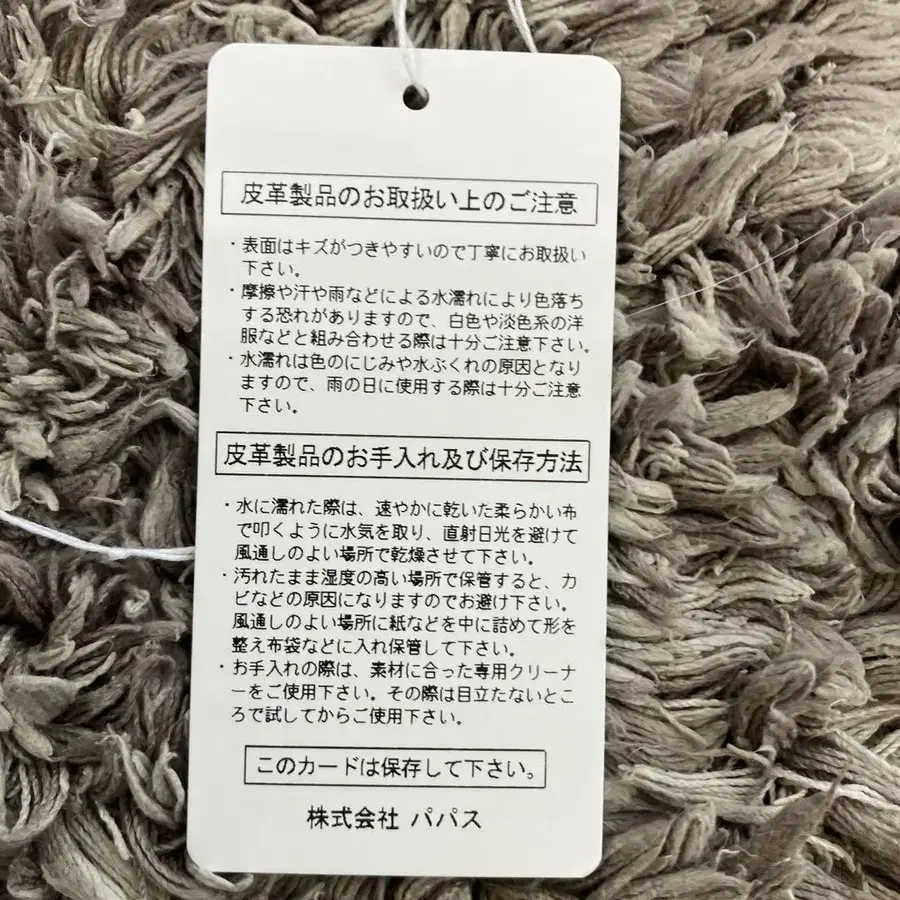 皮革製品のお取扱い上のご注意
・表面はキズがつきやすいので丁寧にお取扱い
下さい。
・摩擦や汗や雨などによる水濡れにより色落ち
する恐れがありますので、白色や淡色系の洋
服などと組み合わせる際は十分ご注意下さい。
・水濡れは色のにじみや水ぶくれの原因となり
ますので、雨の日に使用する際は十分ご注意
下さい。
皮革製品のお手入れ及び保存方法
・水に濡れた際は、速やかに乾いた柔らかい布
で叩くように水気を取り、直射日光を避けて
風通しのよい場所で乾燥させて下さい。
・汚れたまま湿度の高い場所で保管すると、カ
ビなどの原因になりますのでお避け下さい。
風通しのよい場所に紙などを中に詰めて形を
整え布袋などに入れ保管して下さい。
・お手入れの際は、素材に合った専用クリーナ
ーをご使用下さい。その際は目立たないとこ
ろで試してからご使用下さい。
このカードは保存して下さい。
株式会社 パパス